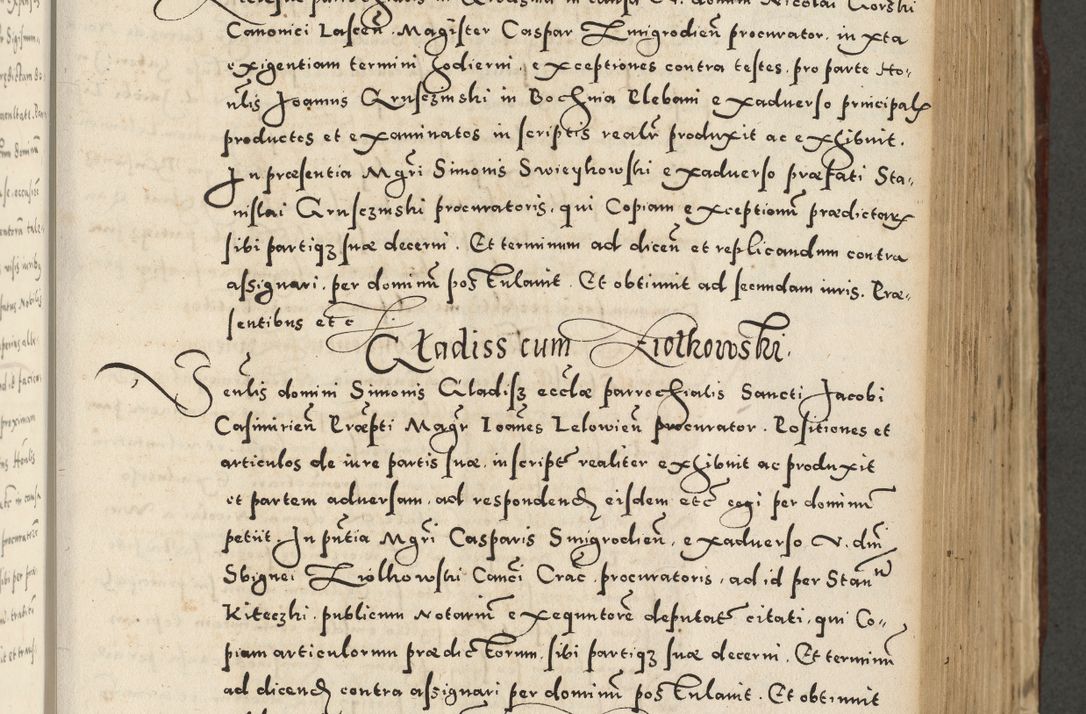 Canonici Lascen̄. Magister Caspar Zmigrodien̄ procurator, in xta
exigentiam termini hodierni, exceptiones contra testes, pro parte Ho-
nīlis Joannis Gruseczinski in Bochnia Plebani exadverso principalr
productos et examinatos in scriptis realr̄ produxit ac exhibuit.
In præsentia Mgr̄i Simonis Swieykowski exadverso præfati Sta-
nislai Grusczinski procuratoris, qui Copiam exceptionū prædictarum
sibi partiq3 suæ decerni. Et terminum ad dicen̄ et replicandum contra
assignari, per dominū postulavit. Et obtinuit ad secundam iuris. Præ-
sentibus etc
Gladiss cum Ziolkowski.
Venlis domini Simonis Gladis3 eccl̄æ parrochialis Sancti Jacobi
Casimirien̄ Præpti Magr̄ Joānes Lelowien̄ procurator. Positiones et
articulos de iure partis suæ, in script̄ realiter exhibuit ac produxit
et partem adversam, ad respondend eisdem etc̄ cogi per dominū
petiit. In pn̄tia Mgr̄i Casparis Smigrodien̄, exadverso V. dn̄i
Sbignei Ziolkowski Canci Crac̄. procuratoris, ad id per Stanm
Kiteczki publicum Notariū exequutorē deputat̄ citati, qui Co-
piam articulorum prædictorum, sibi partiq3 suæ decerni. Et terminū
ad dicend contra assignari per dominū postulavit. Et obtinuit